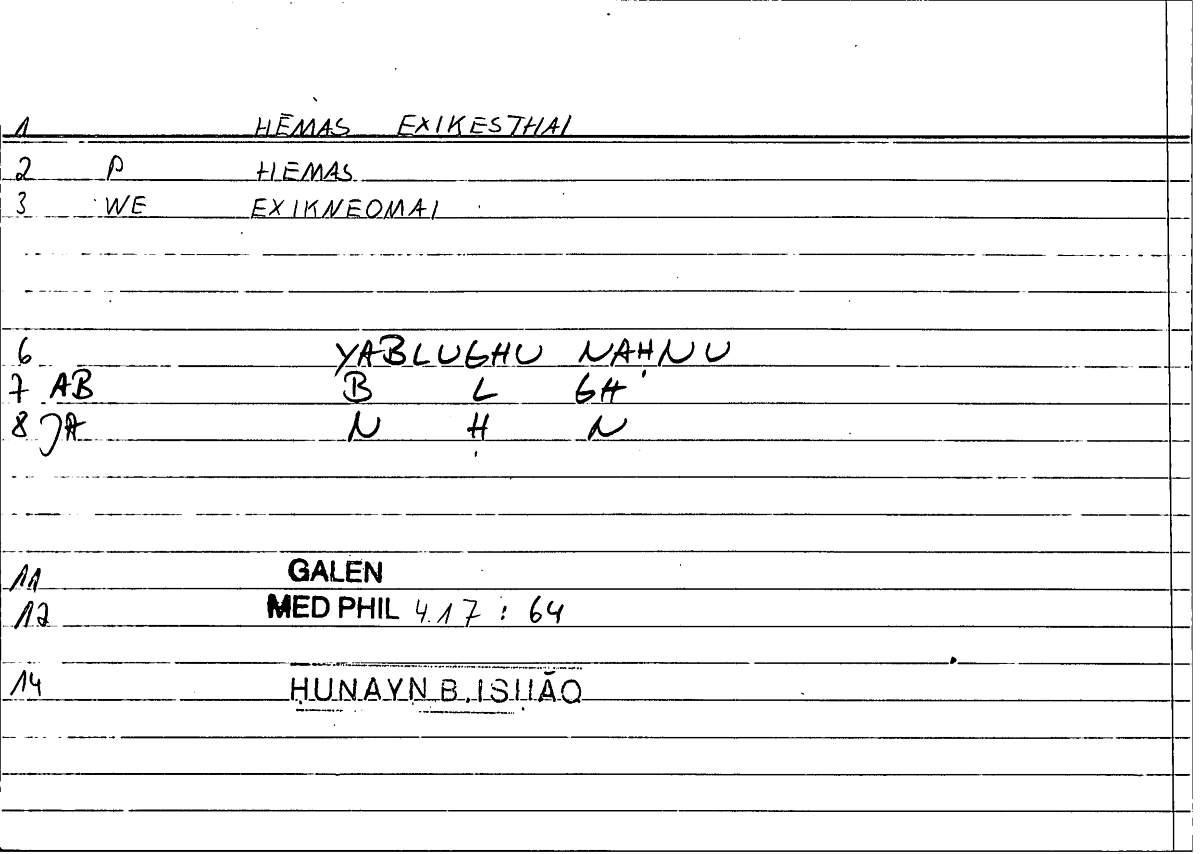 1 HĒMAS EXIKESTHAI
2 P HEMAS
3 WE EXIKNEOMAI
6 YABLUGHU NAḤNU
7 AB B L GH
8 JA N Ḥ N
11 GALEN
12 MED PHIL 4.17 : 64
14 ḤUNAYN B. ISḤĀQ